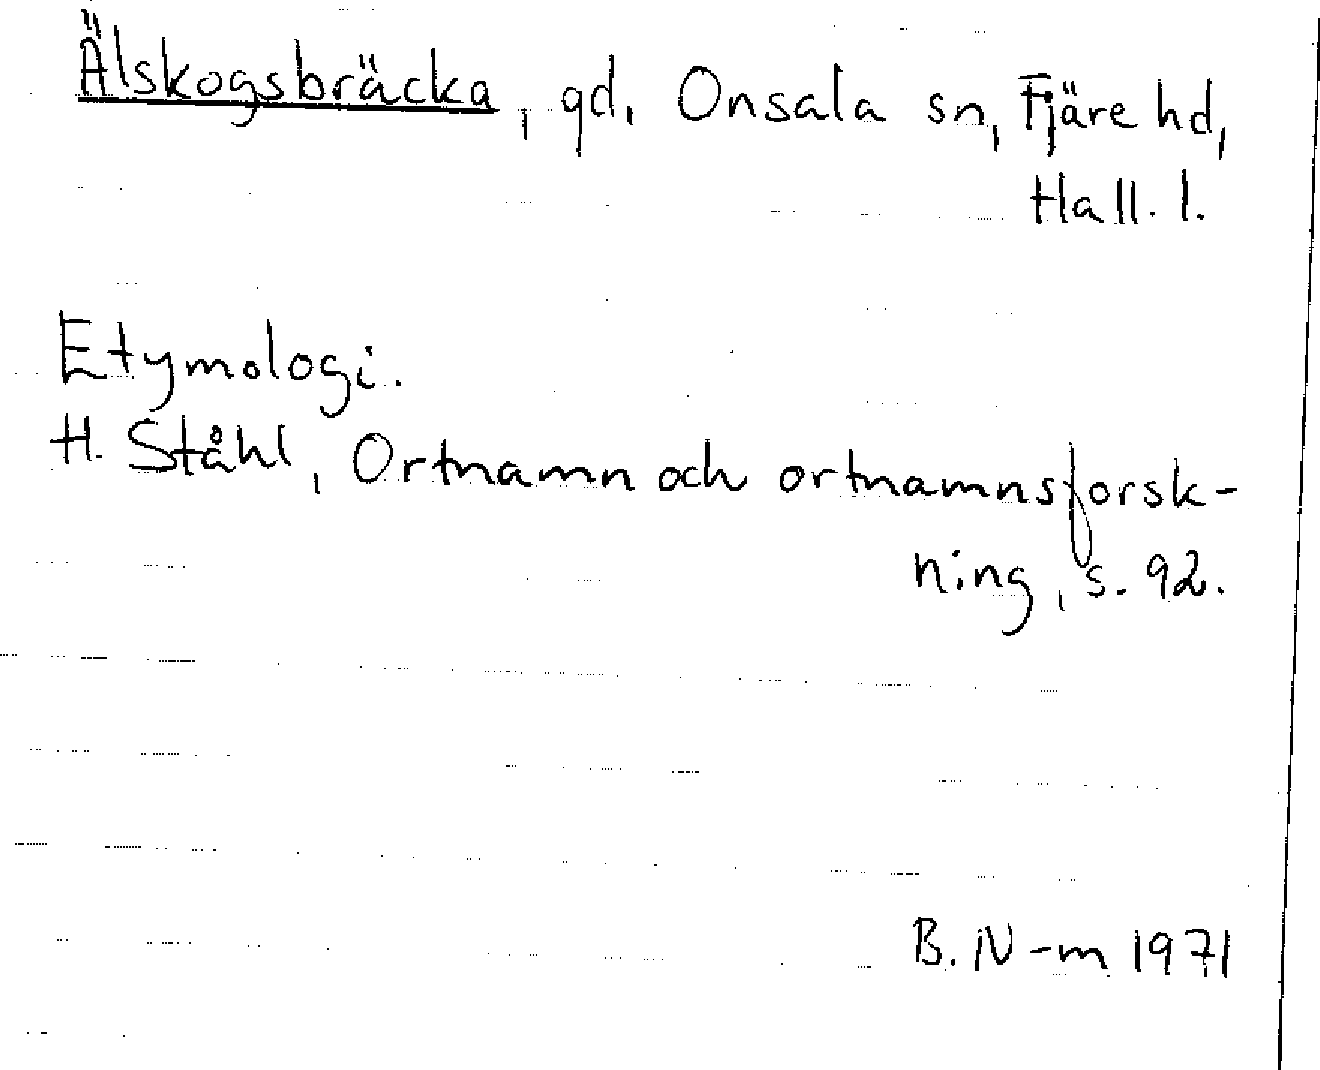 Älskogsbräcka, gd, Onsala sn, Fjäre hd,
Hall. l.
Etymologi.
H. Ståhl, Ortnamn och ortnamnsforsk-
ning, s. 92.
B. N-m 1971